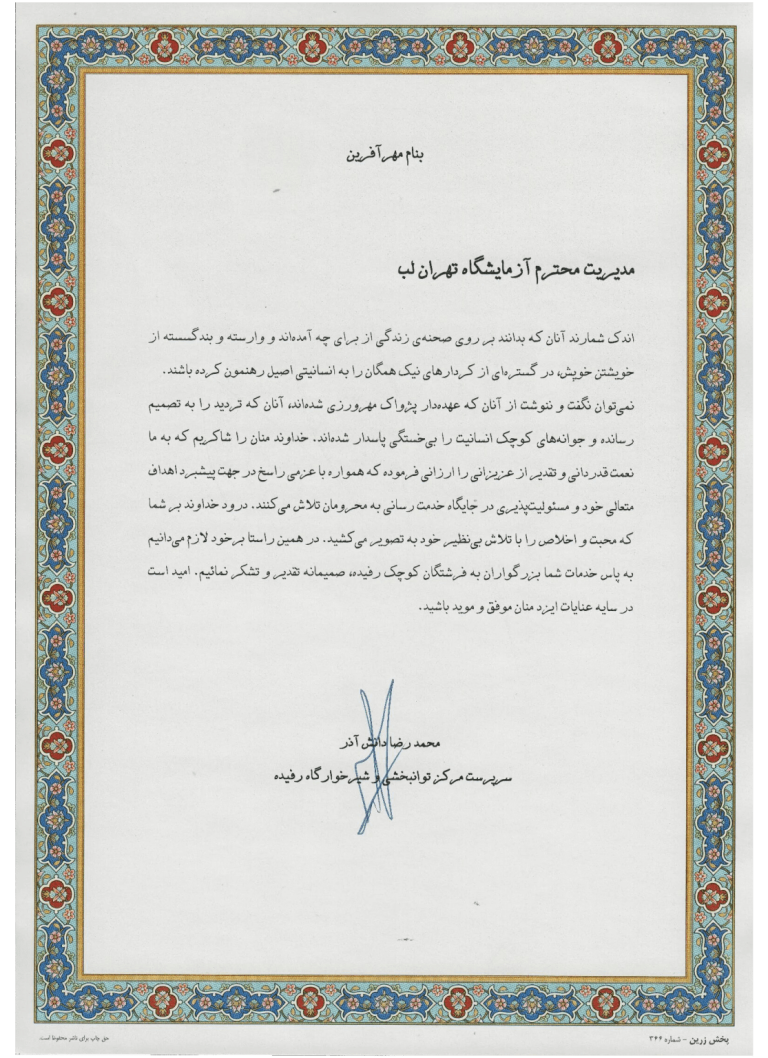 بنام مهر آفرین
مدیریت محترم آزمایشگاه تهران لب
اندک شمارند آنان که بدانند بر روی صحنه‌ی زندگی از برای چه آمده‌اند و وارسته و بندگسسته از
خویشتن خویش، در گستره‌ای از کردارهای نیک همگان را به انسانیتی اصیل رهنمون کرده باشند.
نمی‌توان نگفت و ننوشت از آنان که عهده‌دار پژواک مهرورزی شده‌اند، آنان که تردید را به تصمیم
رسانده و جوانه‌های کوچک انسانیت را بی‌خستگی پاسدار شده‌اند. خداوند منان را شاکریم که به ما
نعمت قدردانی و تقدیر از عزیزانی را ارزانی فرموده که همواره با عزمی راسخ در جهت پیشبرد اهداف
متعالی خود و مسئولیت‌پذیری در جایگاه خدمت رسانی به محرومان تلاش می‌کنند. درود خداوند بر شما
که محبت و اخلاص را با تلاش بی‌نظیر خود به تصویر می‌کشید. در همین راستا برخود لازم می‌دانیم
به پاس خدمات شما بزرگواران به فرشتگان کوچک رفیده، صمیمانه تقدیر و تشکر نمائیم. امید است
در سایه عنایات ایزد منان موفق و موید باشید.
محمد رضا دانش آذر
سرپرست مرکز توانبخشی و شیرخوارگاه رفیده
پخش زرین - شماره ۳۴۴
حق چاپ برای ناشر محفوظ است.